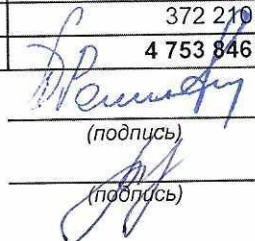 372 210
4 753 846
(подпись)
(подпись)